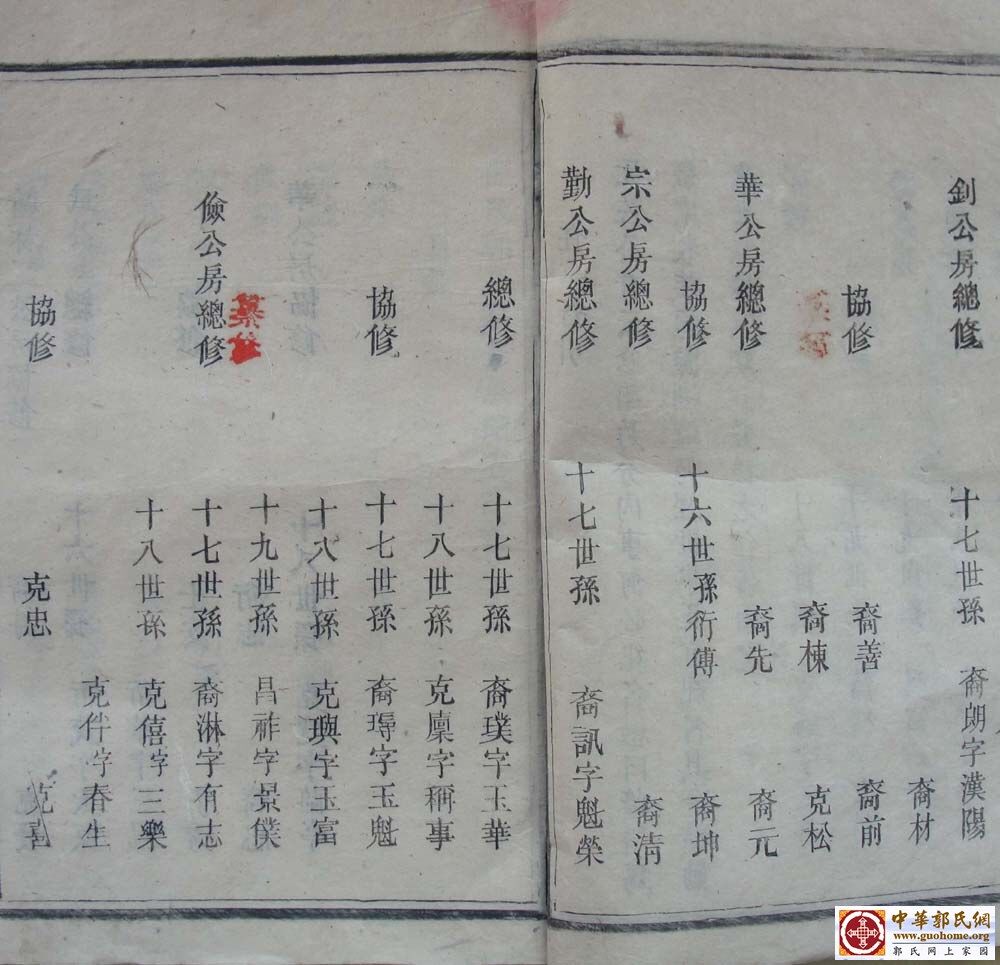 釗公房總修 十七世孫 裔朗字漢陽
裔材
協修 裔善 裔前
裔棟 克松
華公房總修 裔先 裔元
協修 十六世孫衍傳 裔坤
宗公房總修 裔清
勤公房總修 十七世孫 裔訊字魁榮
總修 十七世孫 裔璞字玉華
十八世孫 克廩字稱事
協修 十七世孫 裔字玉魁
十八世孫 克璵字玉富
纂修 十九世孫 昌祚字景僕
儉公房總修 十七世孫 裔淋字有志
十八世孫 克僖字三樂
克伴字春生
協修 克忠 克喜
中華郭氏網
www.guohome.org
郭氏网上家园